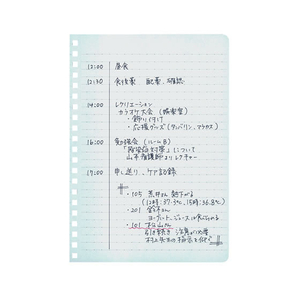 12:00 昼食
12:30 食後薬 配薬、確認
14:00 レクリエーション
カラオケ大会 (娯楽室)
・飾り付け
・応援グッズ (タンバリン、マラカス)
16:00 勉強会 (ルームB)
「感染症対策」について
山本看護師よりレクチャー
17:00 申し送り、ケア記録
・105 荒井さん 熱下がる
(12時:37.5℃、15時:36.8℃)
・201 鈴木さん
ヨーグルト、ジュースは食べられる
・101 村山さん
引き続き 注意が必要